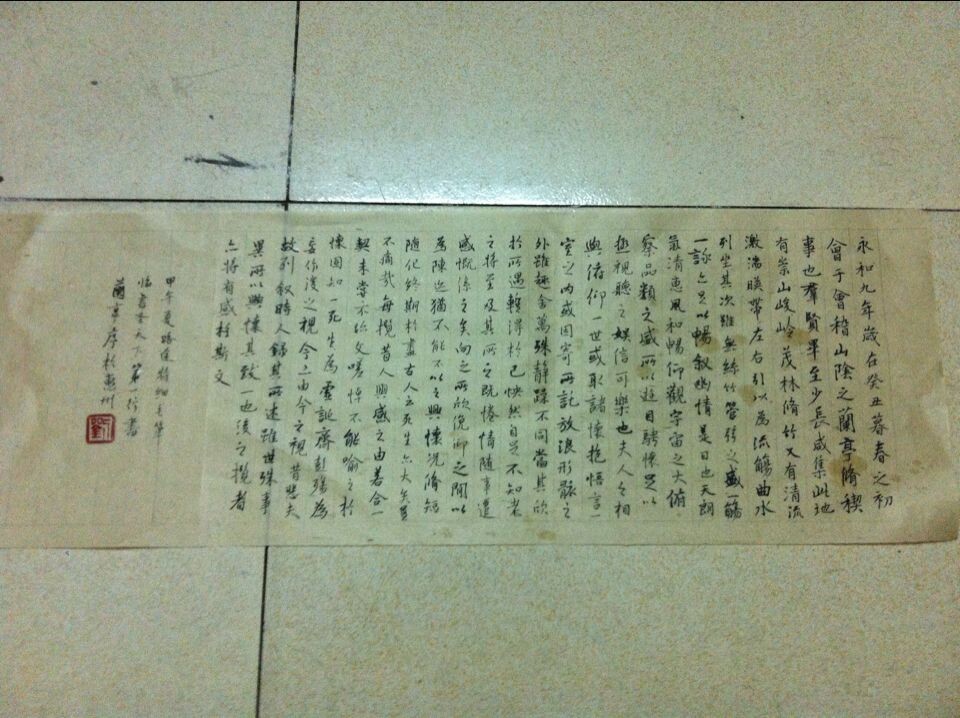 永和九年歲在癸丑暮春之初
會于會稽山陰之蘭亭脩稧
事也羣賢畢至少長咸集此地
有崇山峻嶺茂林脩竹又有清流
激湍暎帶左右引以為流觴曲水
列坐其次雖無絲竹管弦之盛一觴
一詠亦足以暢敘幽情是日也天朗
氣清惠風和暢仰觀宇宙之大俯
察品類之盛所以遊目騁懷足以
極視聽之娛信可樂也夫人之相
與俯仰一世或取諸懷抱悟言一
室之內或因寄所託放浪形骸之
外雖趣舍萬殊靜躁不同當其欣
於所遇輙得於己怏然自足不知老
之將至及其所之既惓情隨事遷
感慨係之矣向之所欣俛仰之間以
為陳迹猶不能不以之興懷況脩短
隨化終期於盡古人云死生亦大矣豈
不痛哉每攬昔人興感之由若合一
契未嘗不臨文嗟悼不能喻之於
懷固知一死生為虛誕齊彭殤為
妄作後之視今亦由今之視昔悲夫
故列敘時人錄其所述雖世殊事
異所以興懷其致一也後之攬者
亦將有感於斯文
甲午夏 筆
臨書聖天下第一行書
蘭亭序於惠州
劉